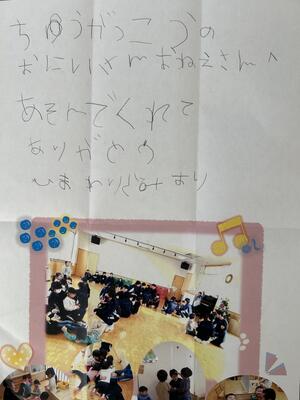 ちゅうがっこうの
おにいさんおねえさんへ
あそんでくれて
ありがとう
ひまわりぐみより